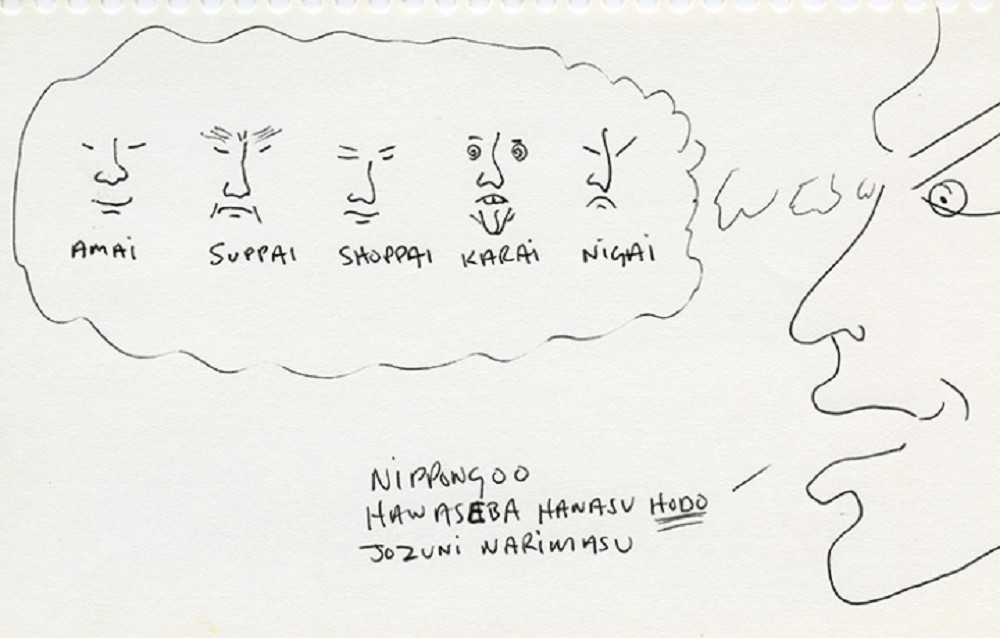 AMAi SUPPAI SHOPPAI KARAi NiGAi
NiPPONGOO
HANASEBA HANASU HODO
JOZUNi NARiMASU